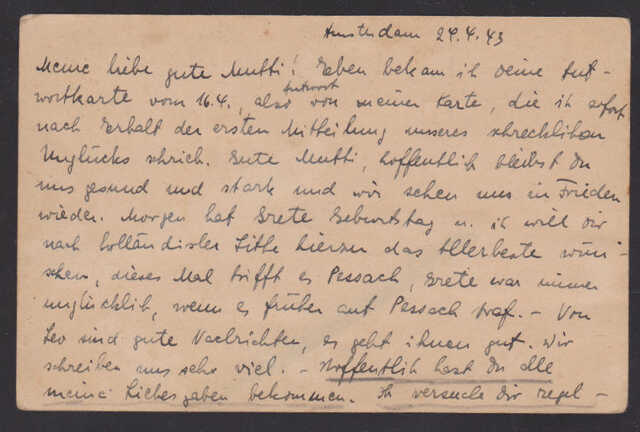 Amsterdam 24.4.43
Meine liebe gute Mutti! Eben bekam ich Deine Ant-
wortkarte vom 16.4., also Antwort von meiner Karte, die ich sofort
nach Erhalt der ersten Mitteilung unseres schrecklichen
Unglücks schrieb. Gute Mutti, hoffentlich bleibst Du
uns gesund und stark und wir sehen uns in Frieden
wieder. Morgen hat Grete Geburtstag u. ich will Dir
nach holländischer Sitte hierzu das Allerbeste wün-
schen, dieses Mal trifft es Pessach, Grete war immer
unglücklich, wenn es früher auf Pessach traf. - Von
Leo sind gute Nachrichten, es geht ihnen gut. Wir
schreiben uns sehr viel. - Hoffentlich hast Du alle
meine Liebesgaben bekommen. Ich versuche Dir regel-